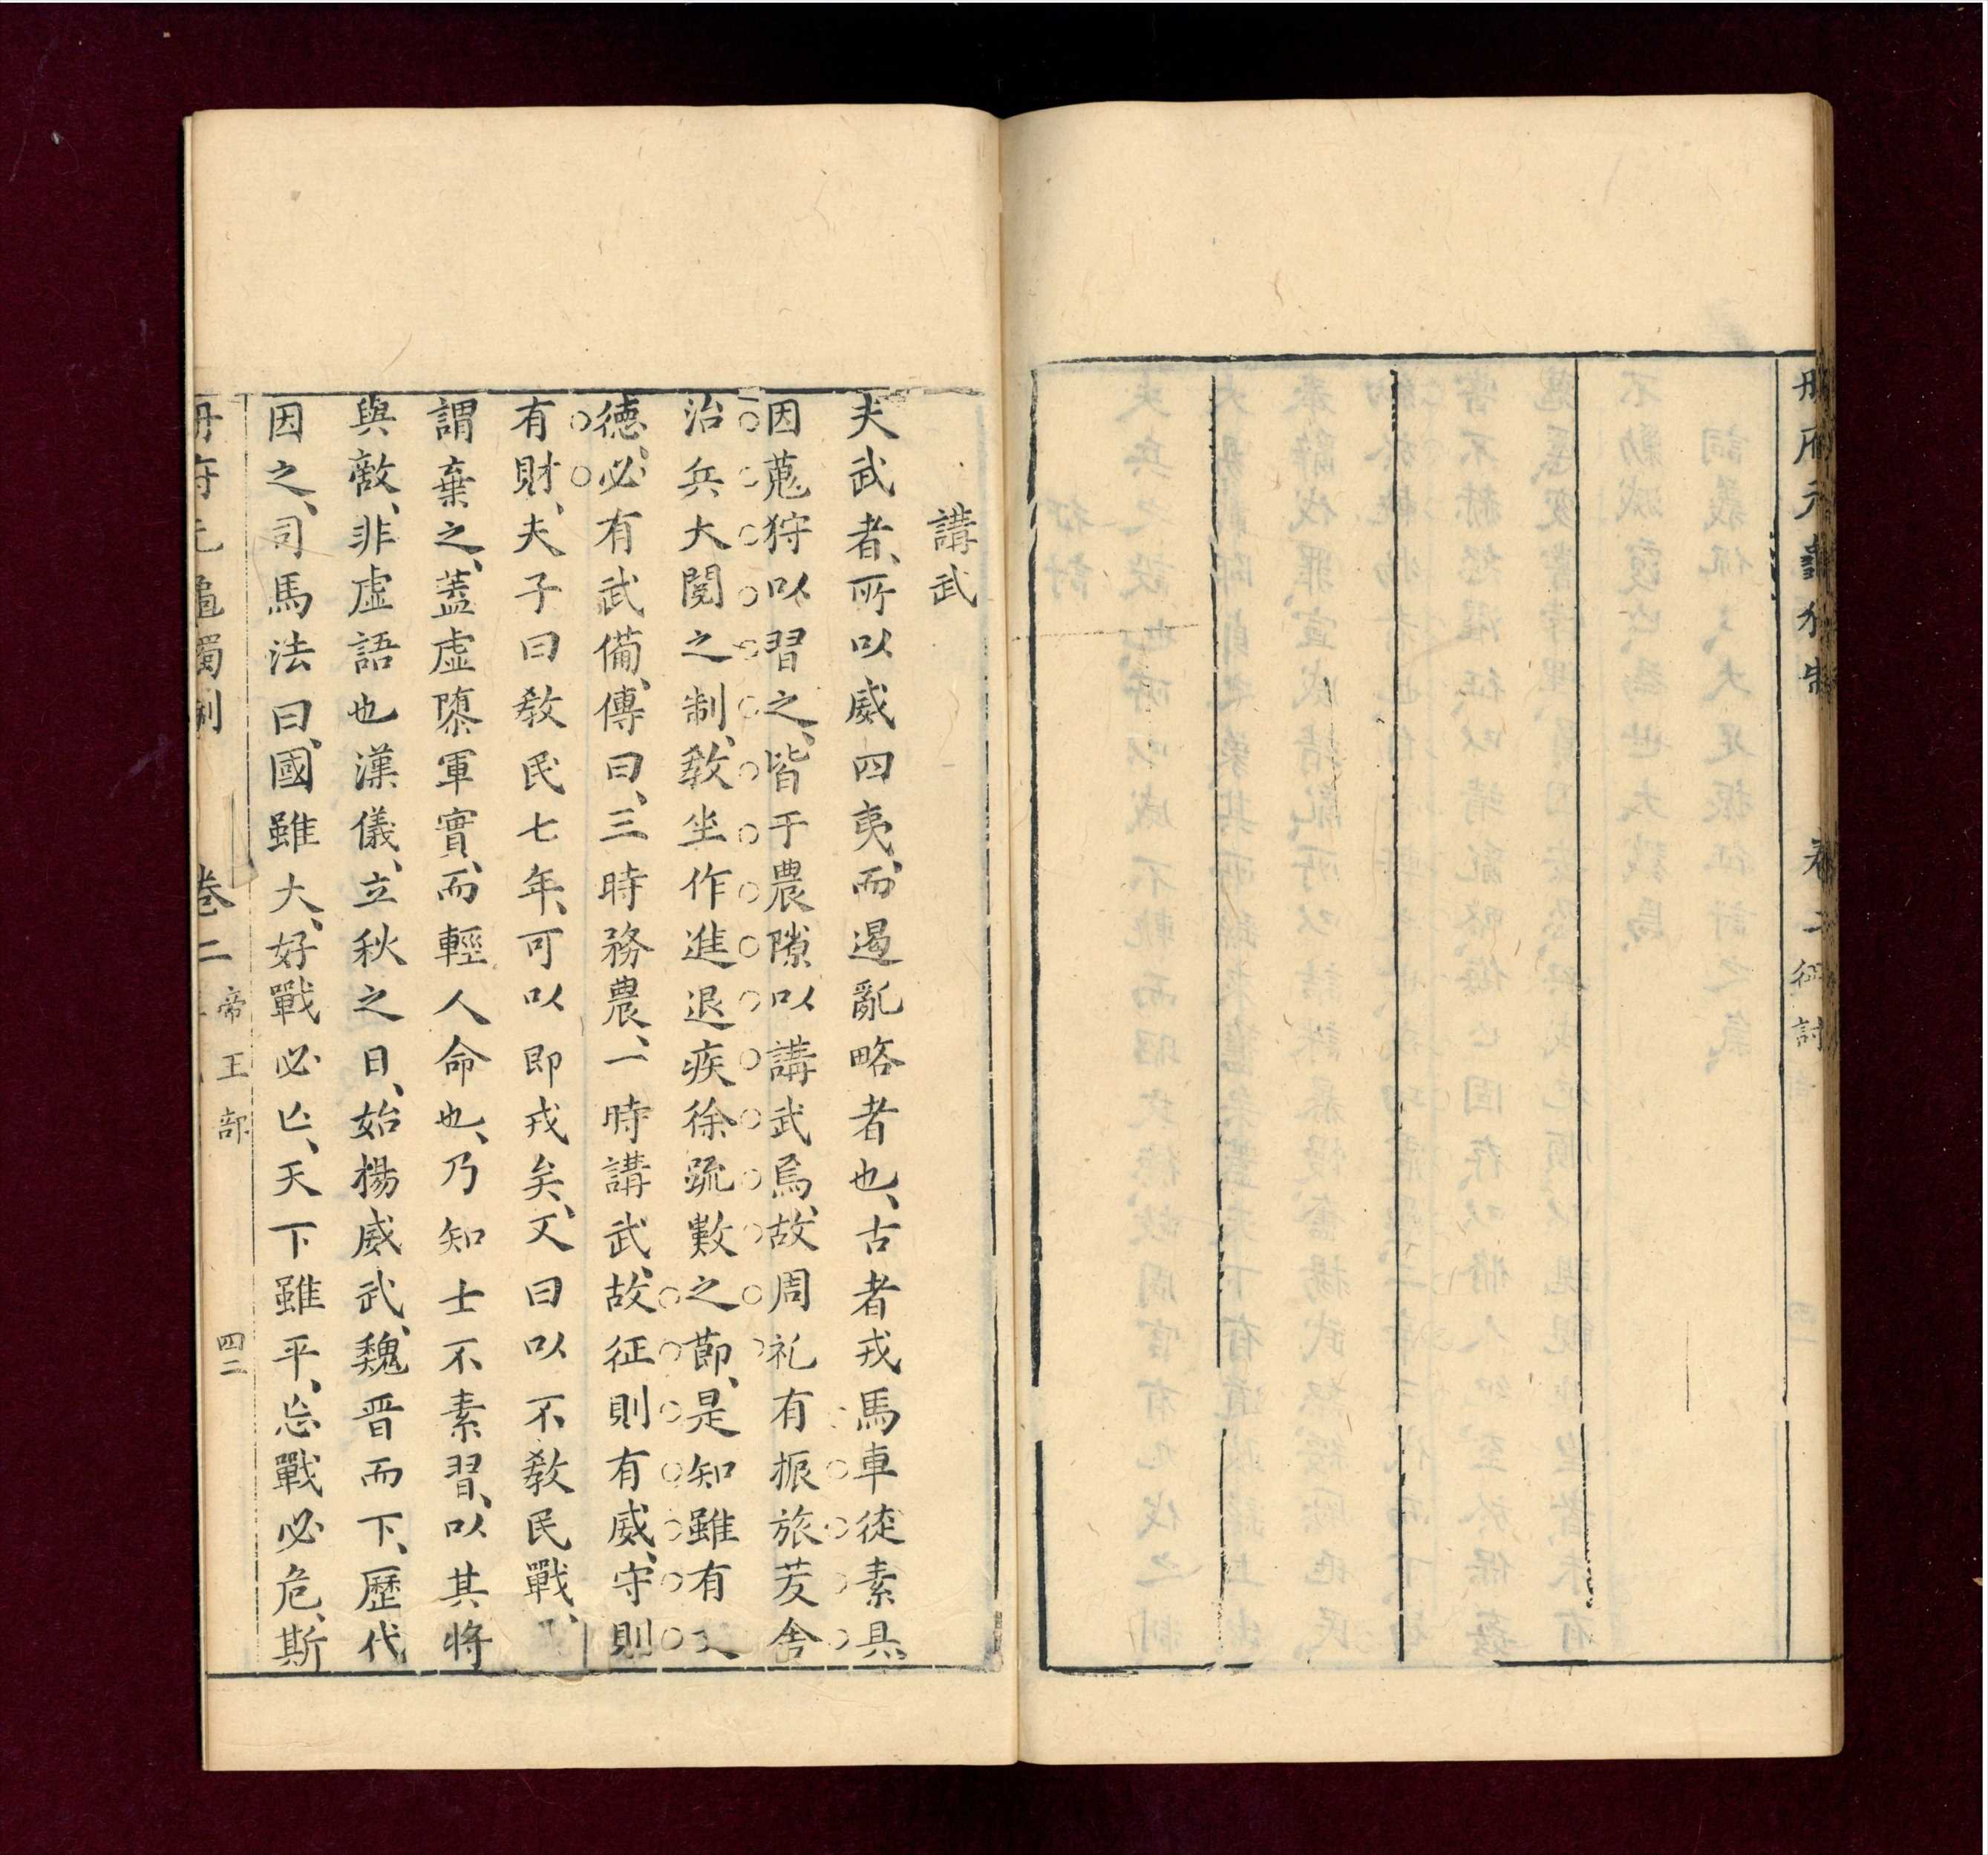 冊府元龜獨制 卷二 征討
講武
夫武者、所以威四夷、而遏亂略者也、古者戎馬車徒素具、
因蒐狩以習之、皆于農隙以講武焉、故周礼有振旅茇舍
治兵大閱之制、教坐作進退疾徐疏數之節、是知雖有文
德、必有武備、傳曰、三時務農、一時講武、故征則有威、守則
有財、夫子曰教民七年、可以即戎矣、又曰以不教民戰、
謂棄之、蓋虛隳軍實、而輕人命也、乃知士不素習、以其將
與敵、非虛語也漢儀、立秋之日、始揚威武、魏晋而下、歷代
因之、司馬法曰、國雖大、好戰必亾、天下雖平、忘戰必危、斯
冊府元龜獨制 卷二 帝王部 四二